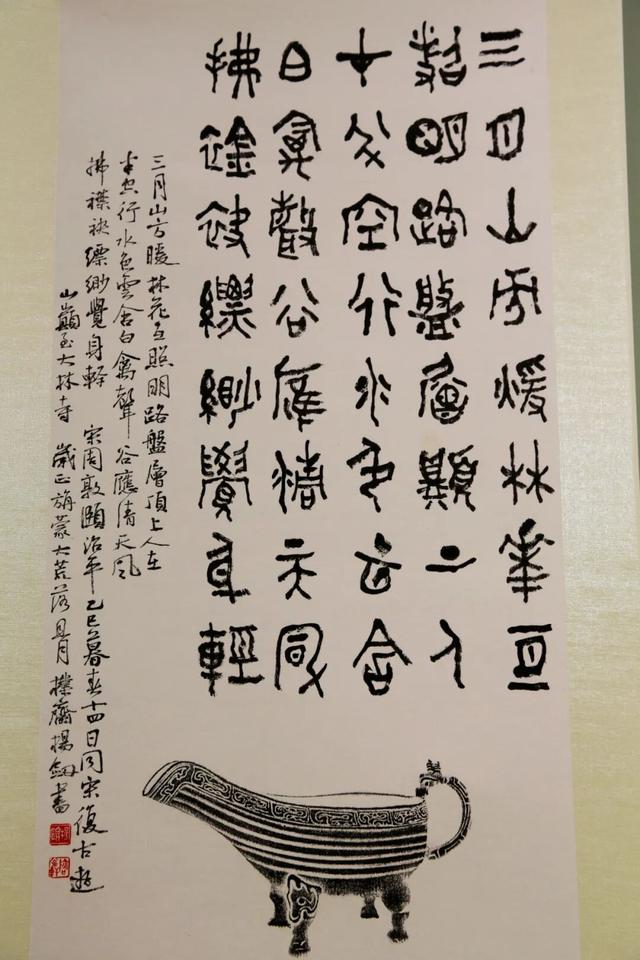 三月山方煖林華互
照明路盤層顛上人
在半空行水色云含
白禽聲谷應清天風
拂襟袂縹緲覺身輕
三月山方暖林花互照明路盤層頂上人在
半空行水色雲含白禽聲谷應清天風
拂襟袂縹緲覺身輕 宋周敦頤治平乙巳暮春十四日同宋復古遊
山巔至大林寺 歲正旃蒙大荒落且月 齋楊釼書